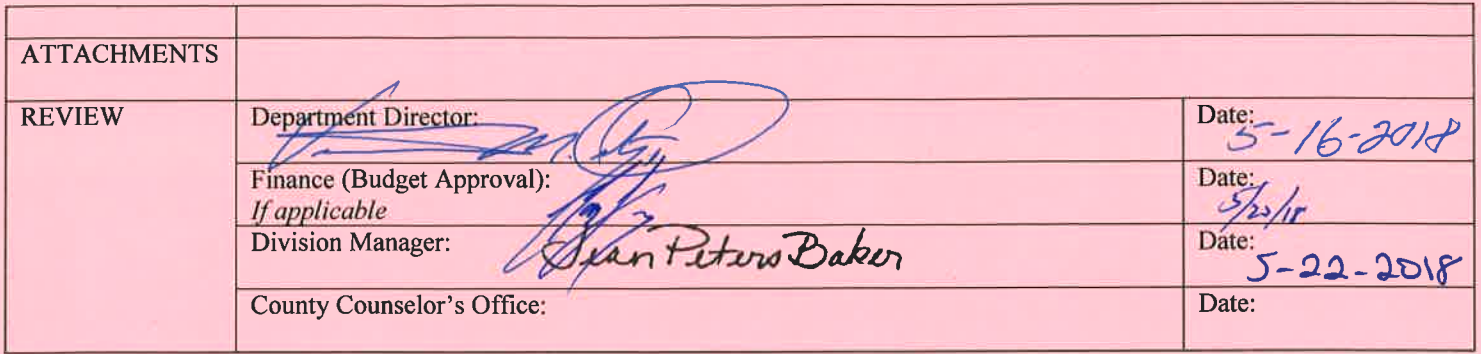 ATTACHMENTS
REVIEW
Department Director:
Date:
5-16-2018
Finance (Budget Approval):
If applicable
Date:
Division Manager:
Jean Peters Baker
Date:
5-22-2018
County Counselor's Office:
Date: